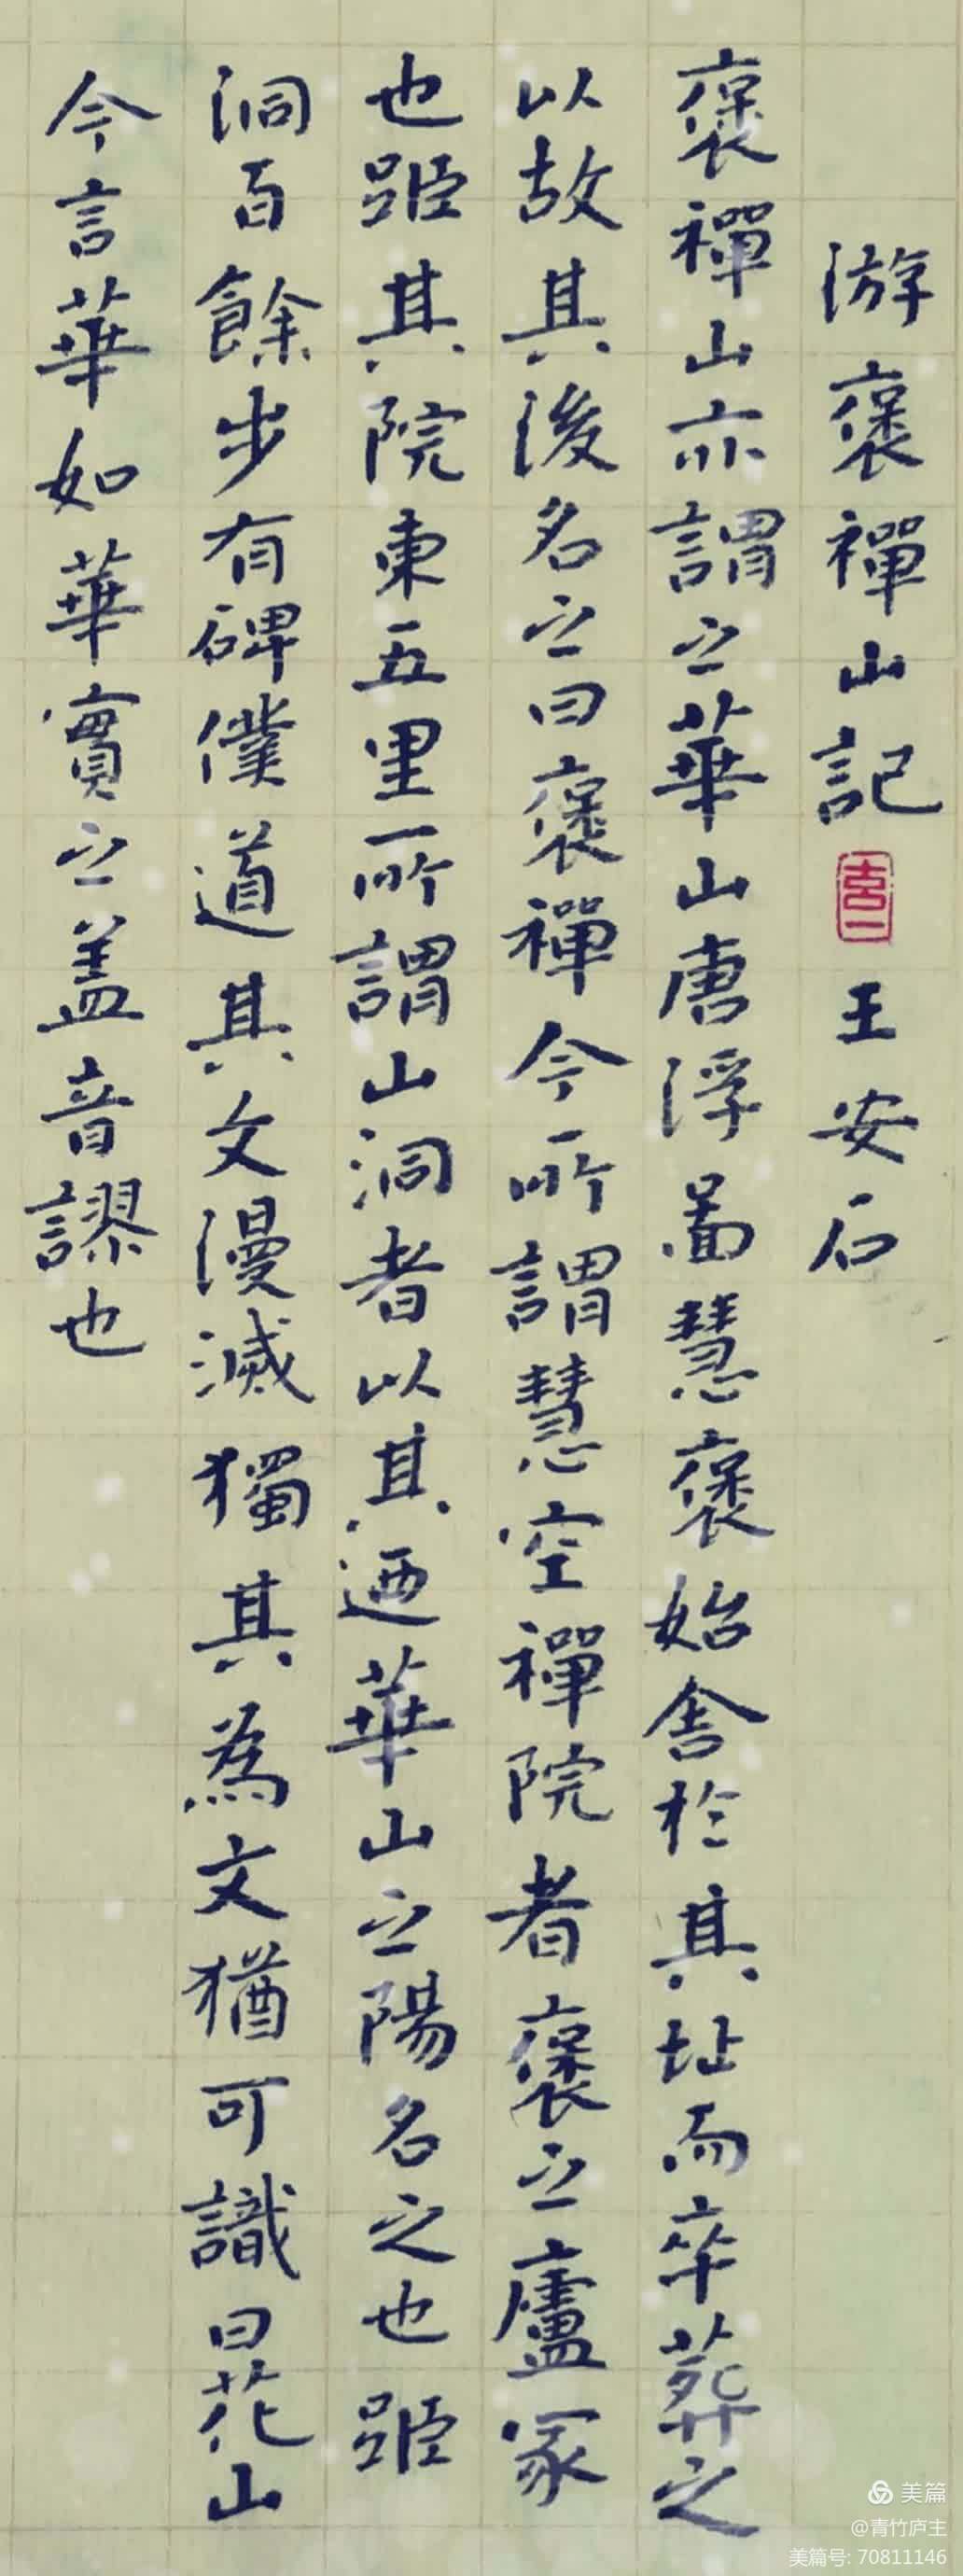 游褒禪山記 王安石
褒禪山亦謂之華山唐浮啚慧褒始舎於其址而卒葬之
以故其後名之曰褒禪今所謂慧空禪院者褒之廬冢
也距其院東五里所謂山洞者以其迺華山之陽名之也距
洞百餘步有碑僕道其文漫滅獨其為文猶可識曰花山
今言華如華實之盖音謬也
美篇
@青竹庐主
美篇号: 70811146